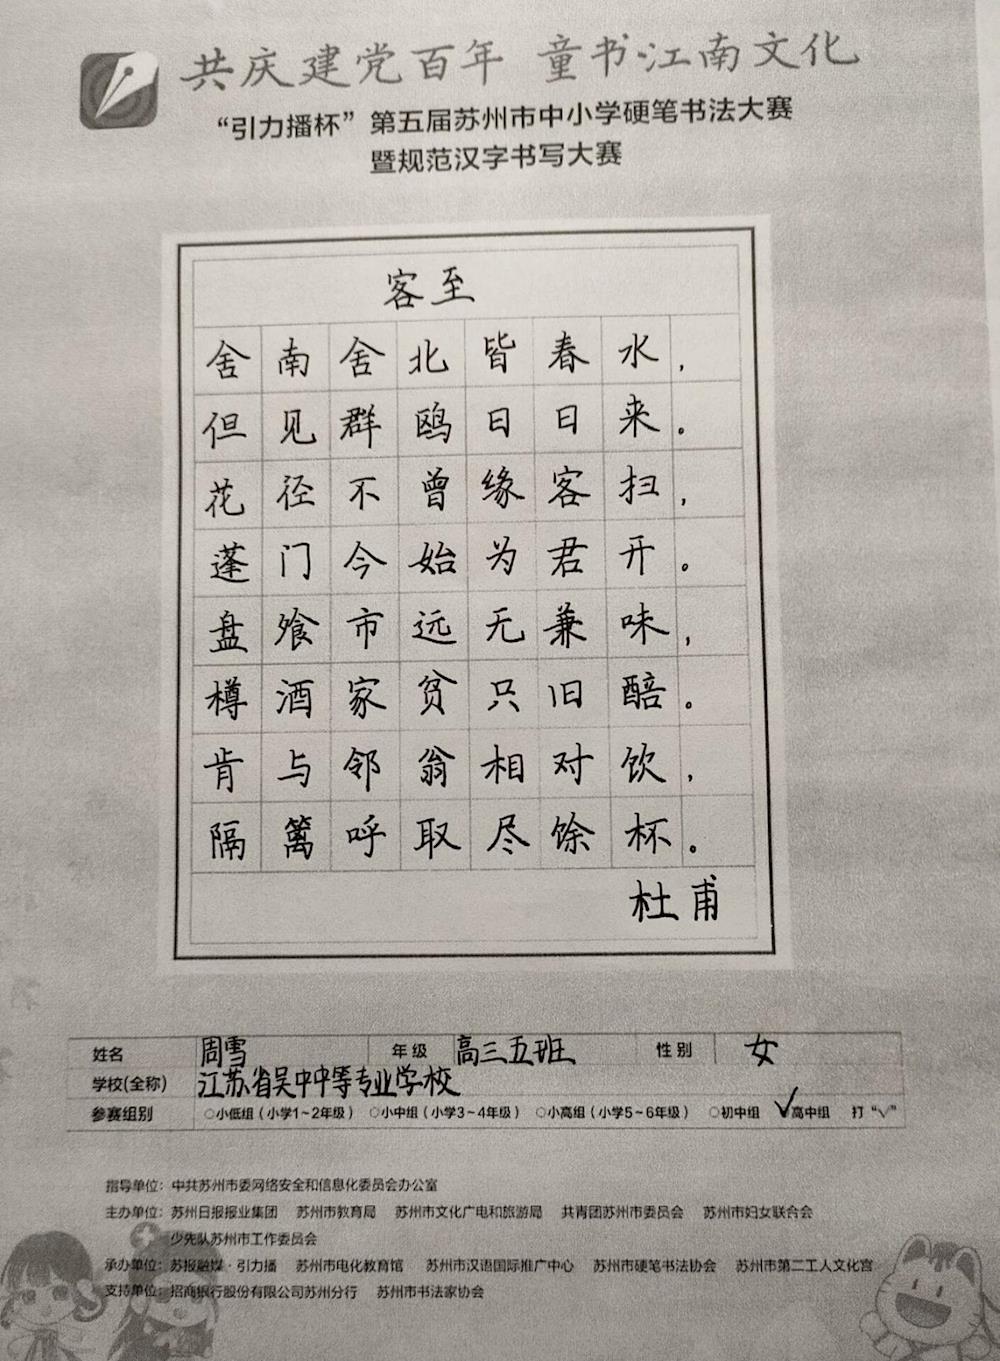 共庆建党百年 童书·江南文化
“引力播杯”第五届苏州市中小学硬笔书法大赛
暨规范汉字书写大赛
客至
舍南舍北皆春水，
但见群鸥日日来。
花径不曾缘客扫，
蓬门今始为君开。
盘飧市远无兼味，
樽酒家贫只旧醅。
肯与邻翁相对饮，
隔篱呼取尽馀杯。
杜甫
姓名 周雪 年级 高三五班 性别 女
学校(全称) 江苏省吴中中等专业学校
参赛组别 ○小低组（小学1~2年级） ○小中组（小学3~4年级） ○小高组（小学5~6年级） ○初中组 √高中组 打“√”
指导单位：中共苏州市委网络安全和信息化委员会办公室
主办单位：苏州日报报业集团 苏州市教育局 苏州市文化广电和旅游局 共青团苏州市委员会 苏州市妇女联合会
少先队苏州市工作委员会
承办单位：苏报融媒·引力播 苏州市电化教育馆 苏州市汉语国际推广中心 苏州市硬笔书法协会 苏州市第二工人文化宫
支持单位：招商银行股份有限公司苏州分行 苏州市书法家协会